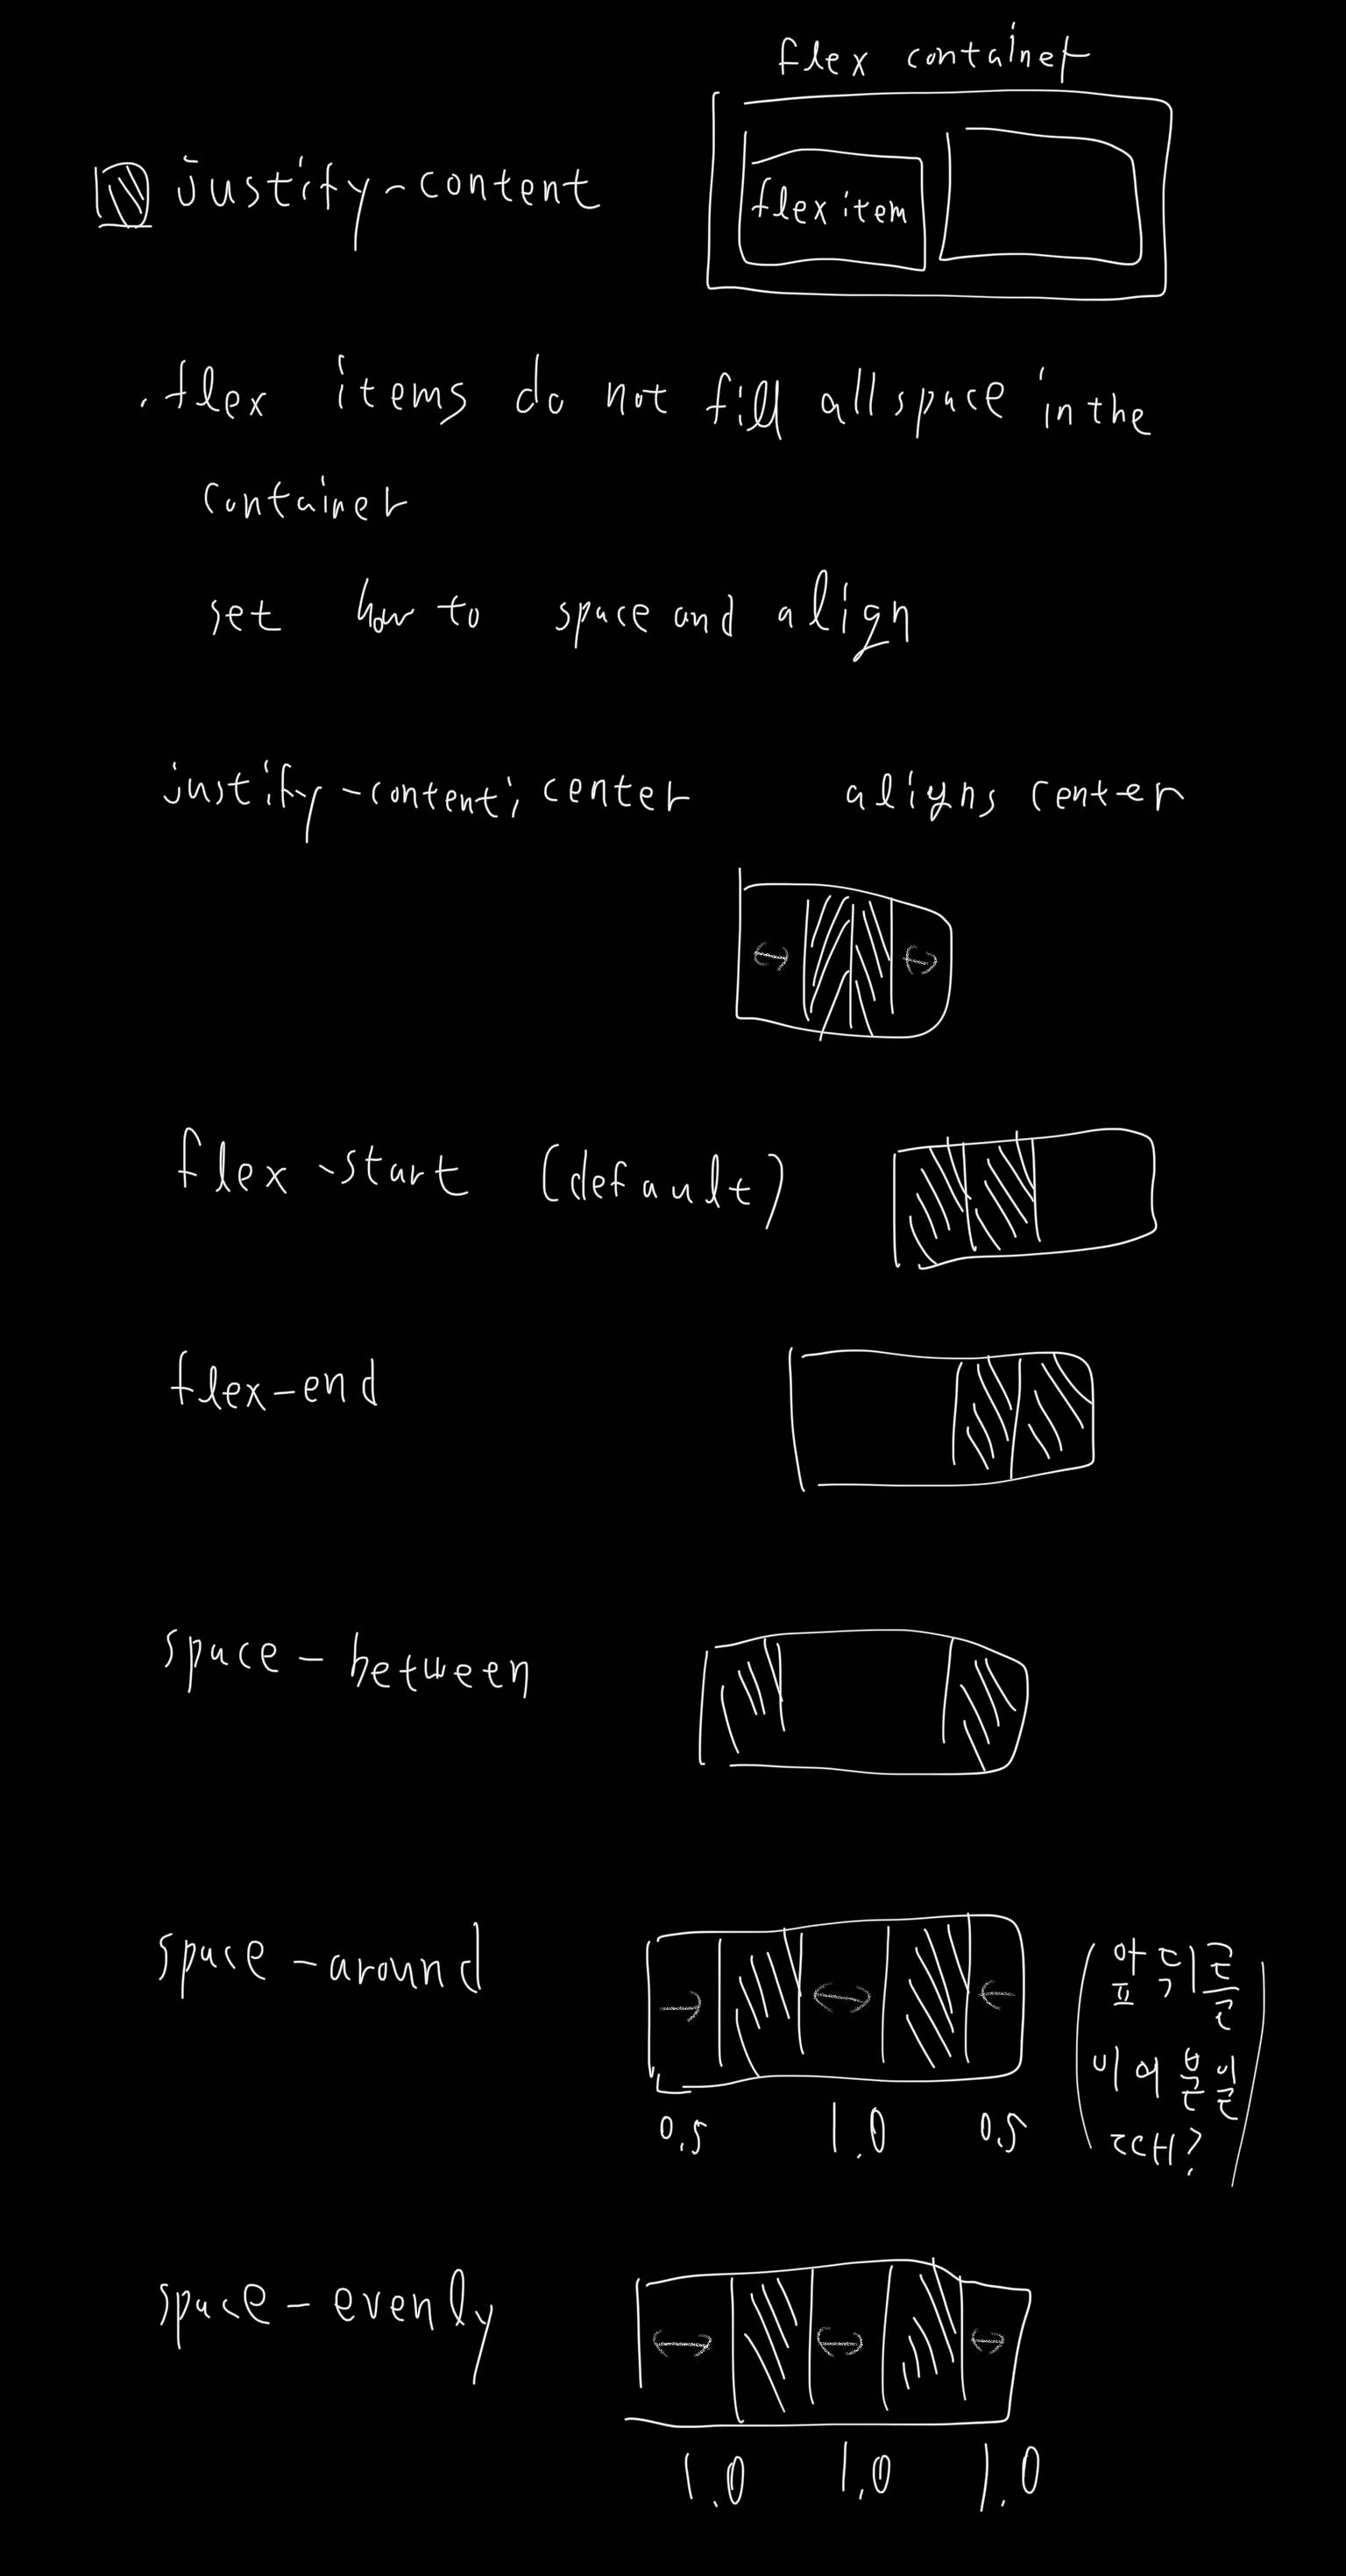 flex container
justify-content
flex item
. flex items do not fill all space in the
container
set how to space and align
justify-content; center aligns center
flex-start (default)
flex-end
space-between
space-around
0.5 1.0 0.5
space-evenly
1.0 1.0 1.0